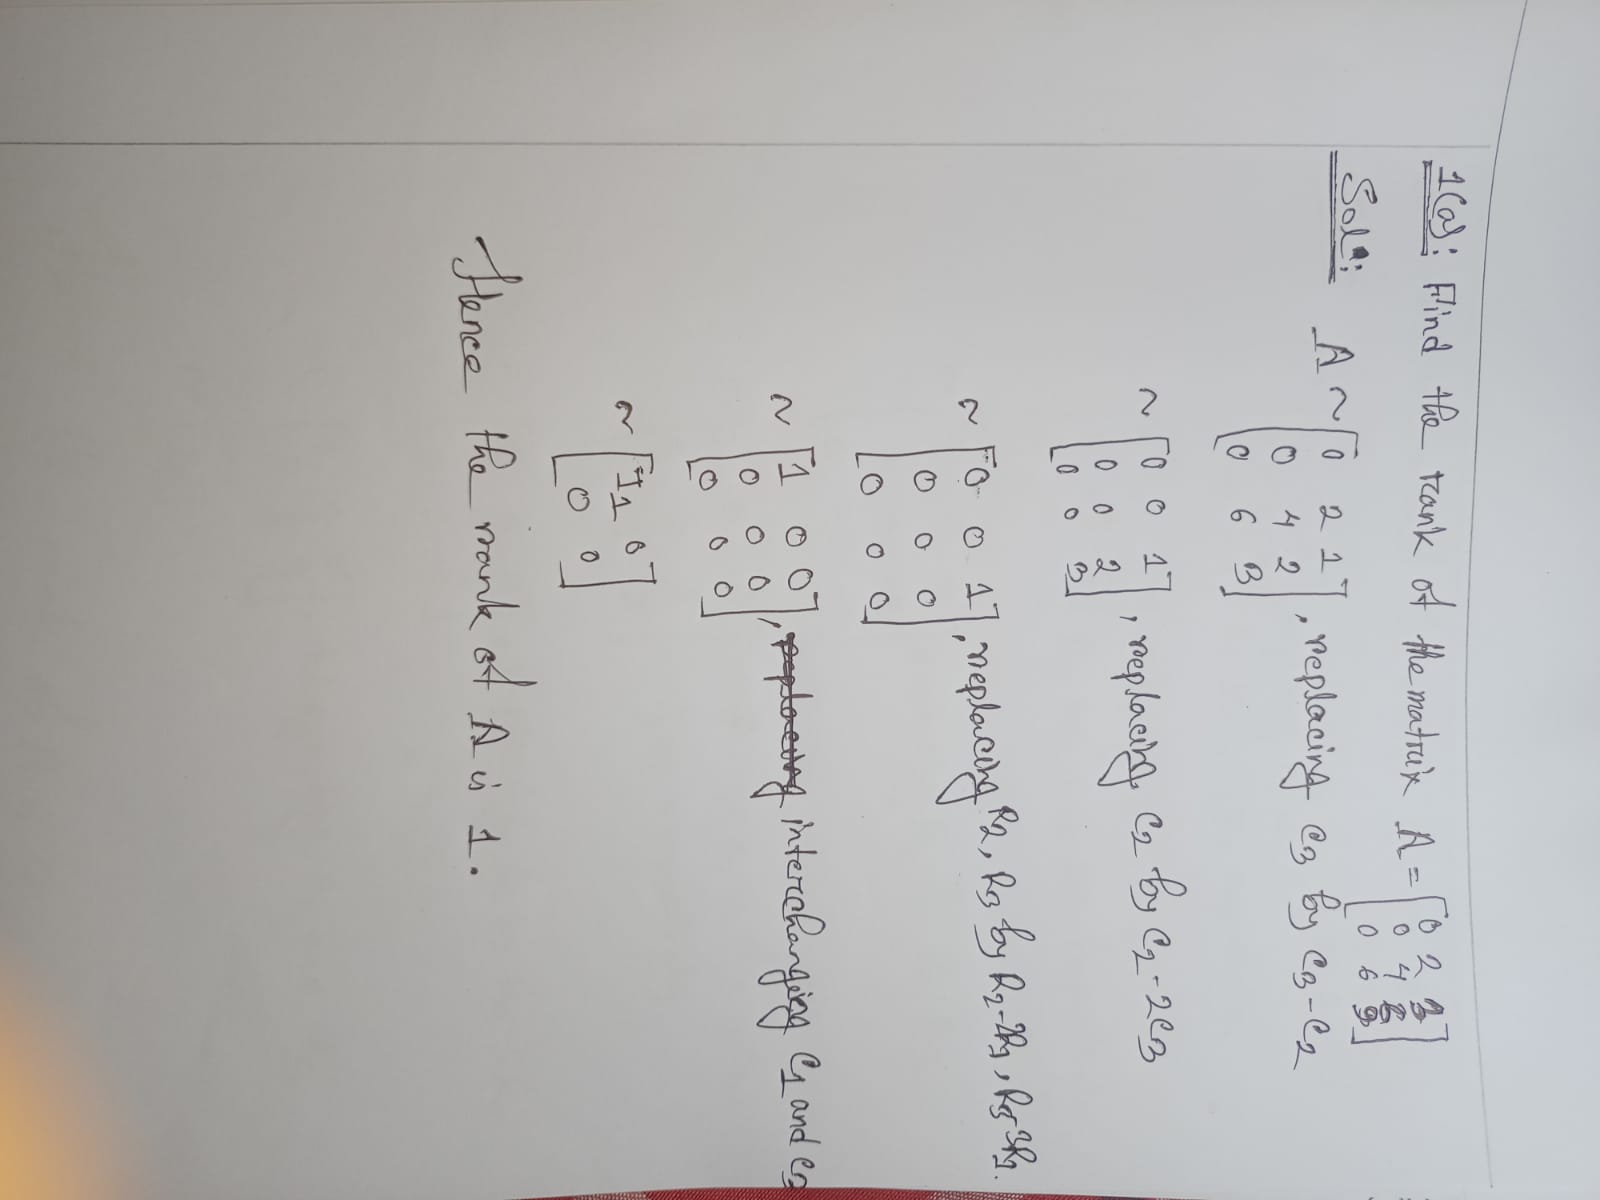 1(a): Find the rank of the matrix A = [0 2 3
0 4 6
0 6 9]
Sol: A ~ [0 2 1
0 4 2
0 6 3], replacing C3 by C3-C2
~ [0 0 1
0 0 2
0 0 3], replacing C2 by C2-2C3
~ [0 0 1
0 0 0
0 0 0], replacing R2, R3 by R2-2R1, R3-3R1.
~ [1 0 0
0 0 0
0 0 0], replacing interchanging C1 and C3
~ [I1 0
0 0]
Hence the rank of A is 1.